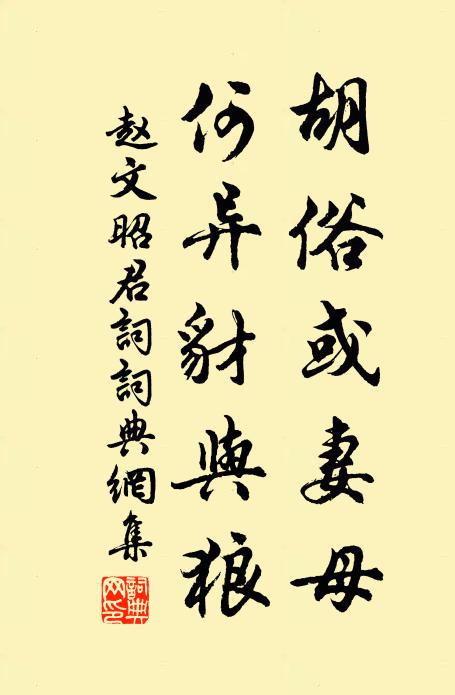 胡俗或妻母
何异豺與狼
赵文昭君詞詞典網集
詞典網印